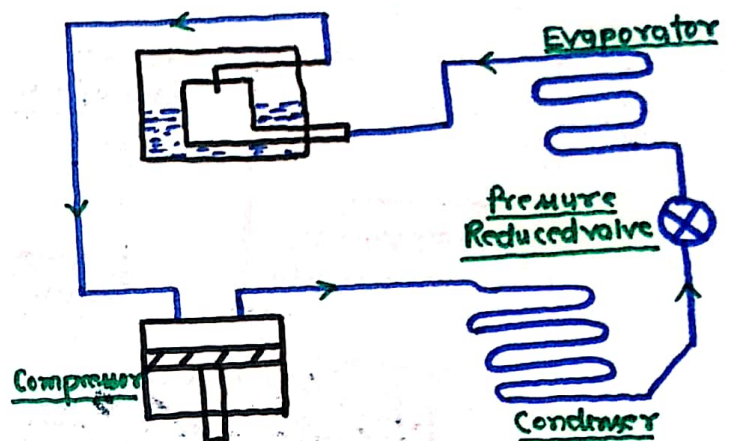 Evaporator
Pressure
Reducedvalve
Compressor
Condenser